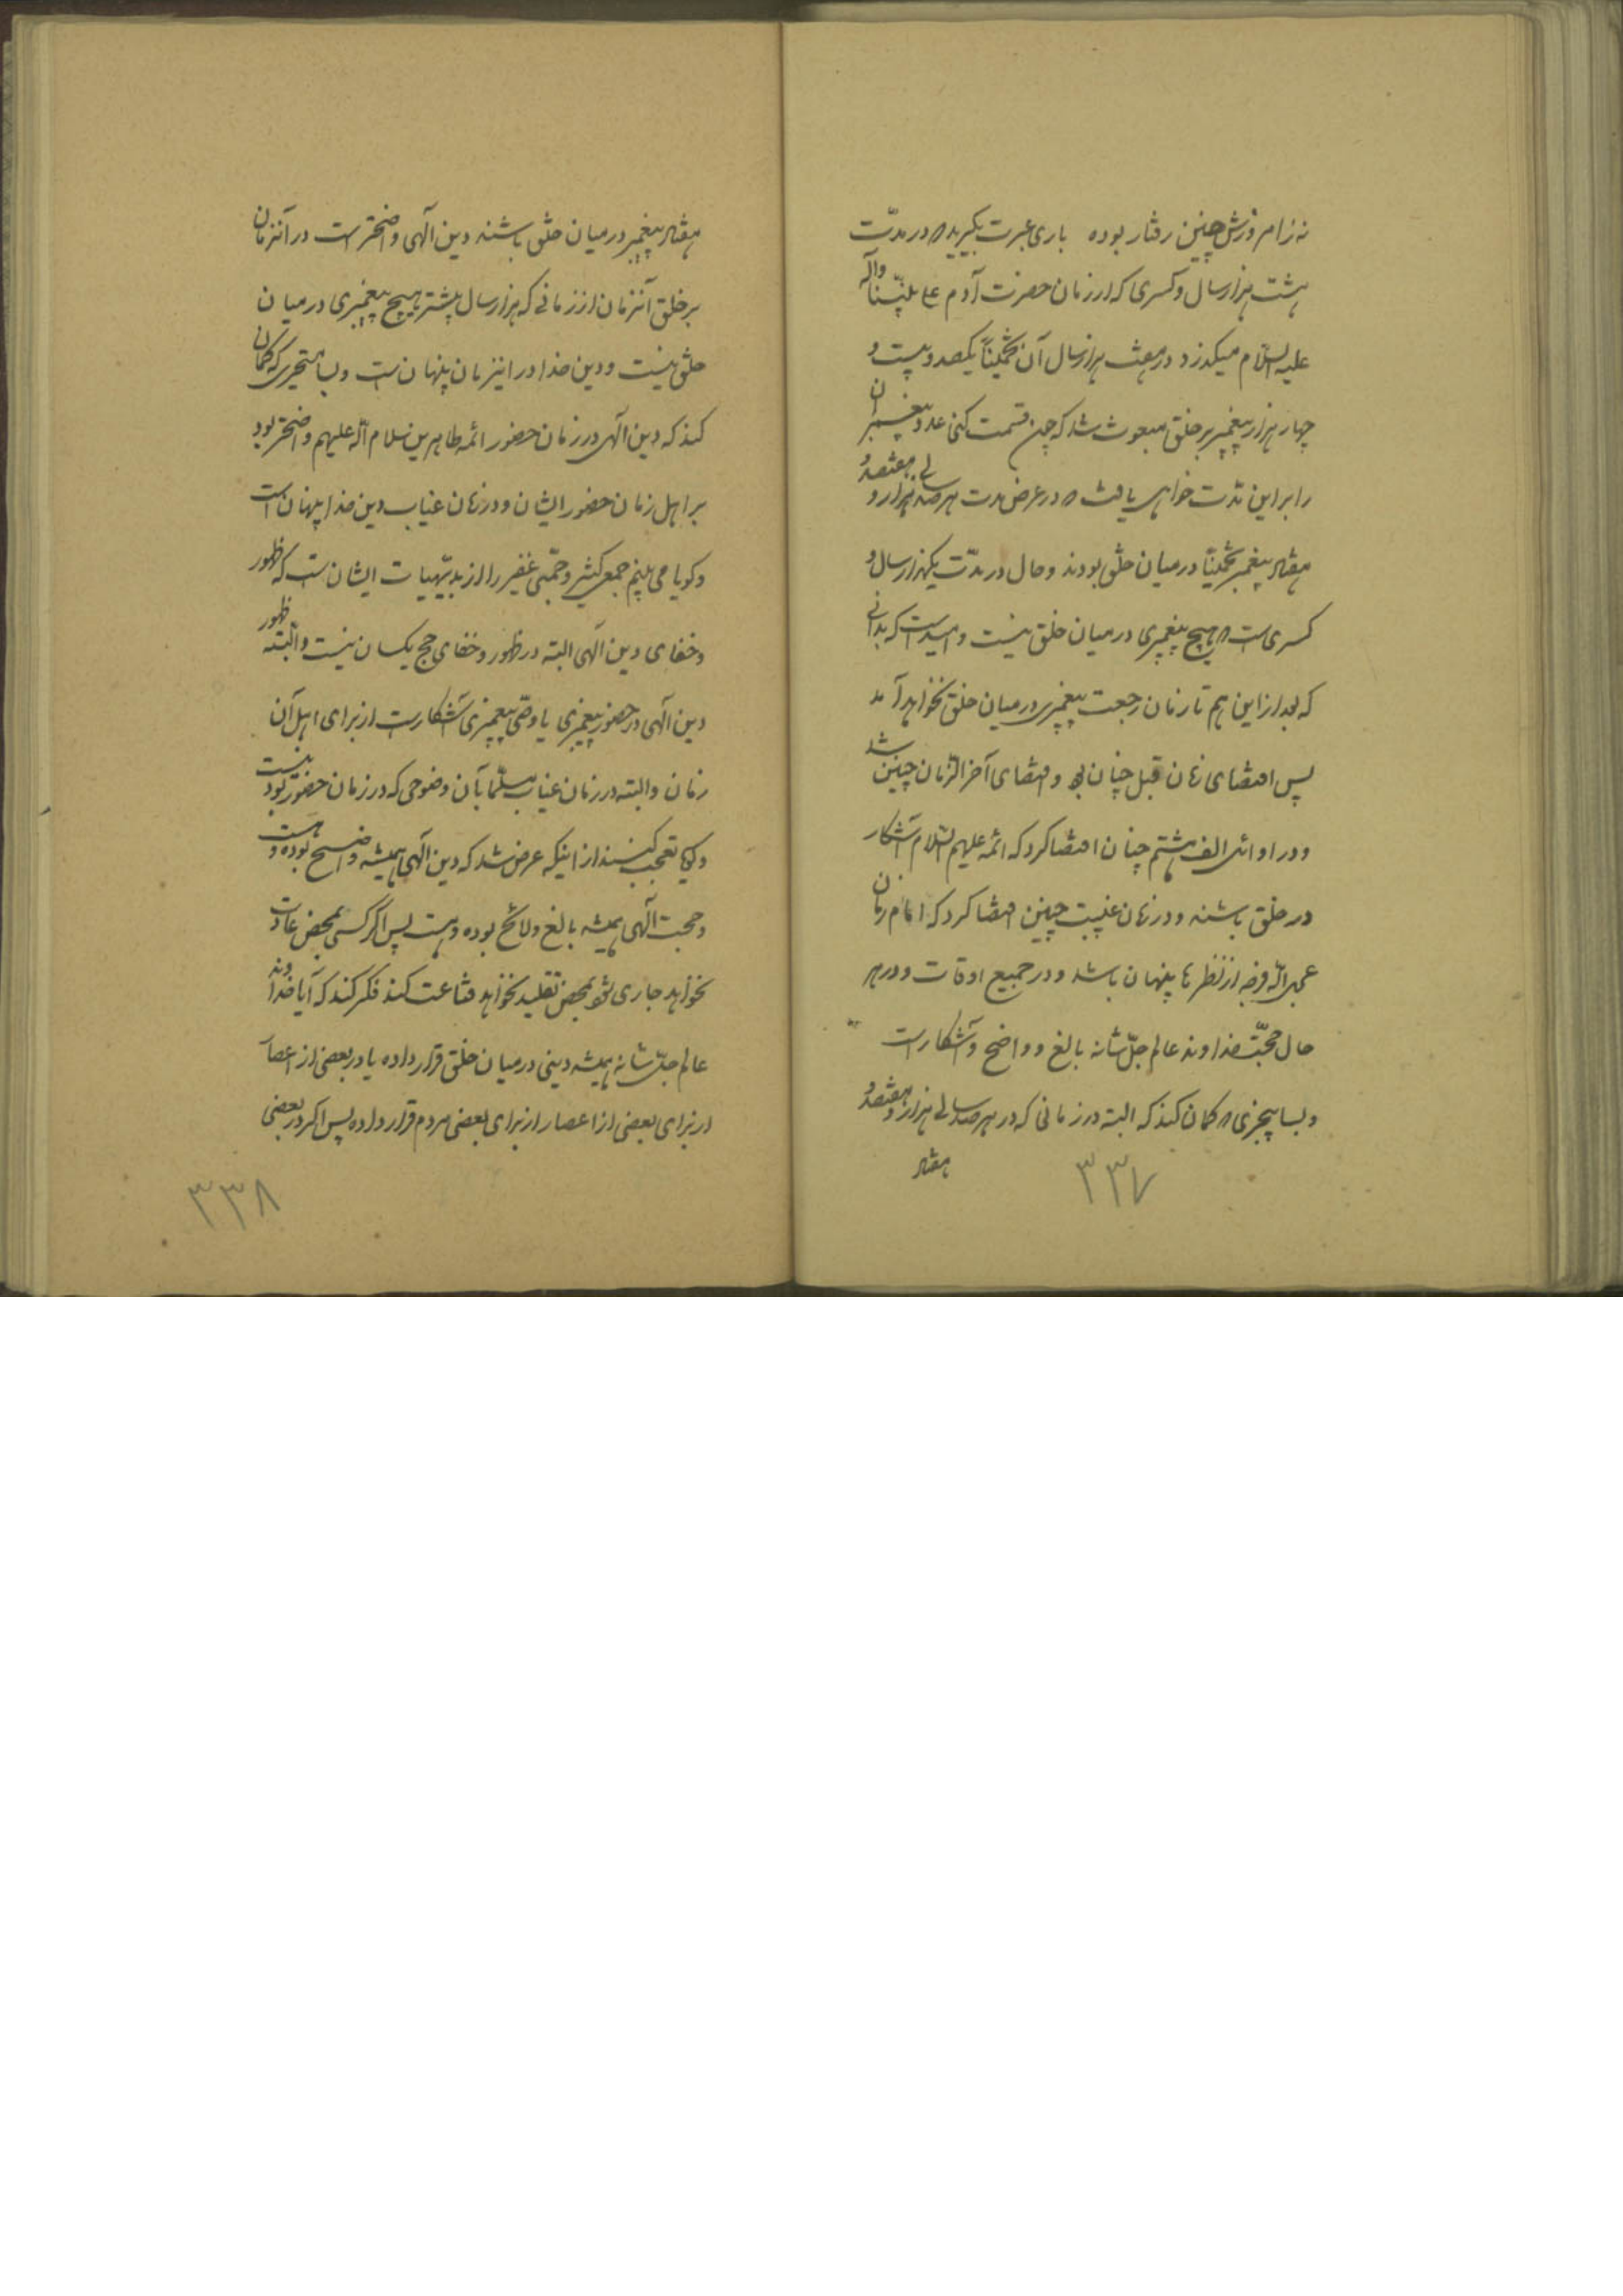 نه از امروزش چنین رفتار بوده باری عبرت بگیرید که در مدّت
هشت هزار سال و کسری که از زمان حضرت آدم علی نبیّنا و آله
علیه السلام میگذرد در هفت هزار سال آن تخمیناً یکصد و بیست و
چهار هزار پیغمبر بر خلق مبعوث شد که چون قسمت کنی عدد پیغمبران
را بر این مدّت خواهی یافت که در عرض مدت هر صد سالی هزار و هفتصد و
هفتاد پیغمبر تخمیناً در میان خلق بودند و حال در مدّت یکهزار سال و
کسری است که هیچ پیغمبری در میان خلق نیست و امید است که بدانی
که بعد از این هم تا زمان رجعت پیغمبری در میان خلق نخواهد آمد
پس اقتضای زمان قبل چنان بود و اقتضای آخر الزمان چنین شد
و در اوائل الف هشتم چنان اقتضا کرد که ائمه علیهم السلام آشکار
در خلق باشند و در زمان غیبت چنین اقتضا کرد که امام زمان
عجل اللّه فرجه از نظرها پنهان باشد و در جمیع اوقات و در هر
حال حجّت خداوند عالم جلّ شانه بالغ و واضح و آشکار است
و بسا بیخبری که گمان کند که البته در زمانی که در هر صد سالی هزار و هفتصد و
هفتاد
۳۳۷
هفتاد پیغمبر در میان خلق باشند دین الهی واضحتر است در آنزمان
بر خلق آنزمان از زمانی که هزار سال بیشتر هیچ پیغمبری در میان
خلق نیست و دین خدا در اینزمان پنهان است و بسا متحیری که گمان
کند که دین الهی در زمان حضور ائمه طاهرین سلام اللّه علیهم واضحتر بود
بر اهل زمان حضور ایشان و در زمان غیاب دین خدا پنهان است
و گویا می بینم جمع کثیر و جمّی غفیر را از بدیهیات ایشان است که ظهور
و خفای دین الهی البته در ظهور و خفای حجج یکسان نیست و البته ظهور
دین الهی در حضور پیغمبری یا وصی پیغمبری آشکار است از برای اهل آن
زمان و البته در زمان غیاب مسلّما بآن وضوحی که در زمان حضور بود نیست
و گویا تعجب کنند از اینکه عرض شد که دین الهی همیشه واضح بوده و هست
و حجت الهی همیشه بالغ و لائح بوده و هست پس اگر کسی بمحض عادت
نخواهد جاری شود و بمحض تقلید نخواهد قناعت کند فکر کند که آیا خداوند
عالم جلّ شانه همیشه دینی در میان خلق قرار داده یا در بعضی از اعصار
از برای بعضی از اعصار از برای بعضی مردم قرار داده پس اگر در بعضی
۳۳۸